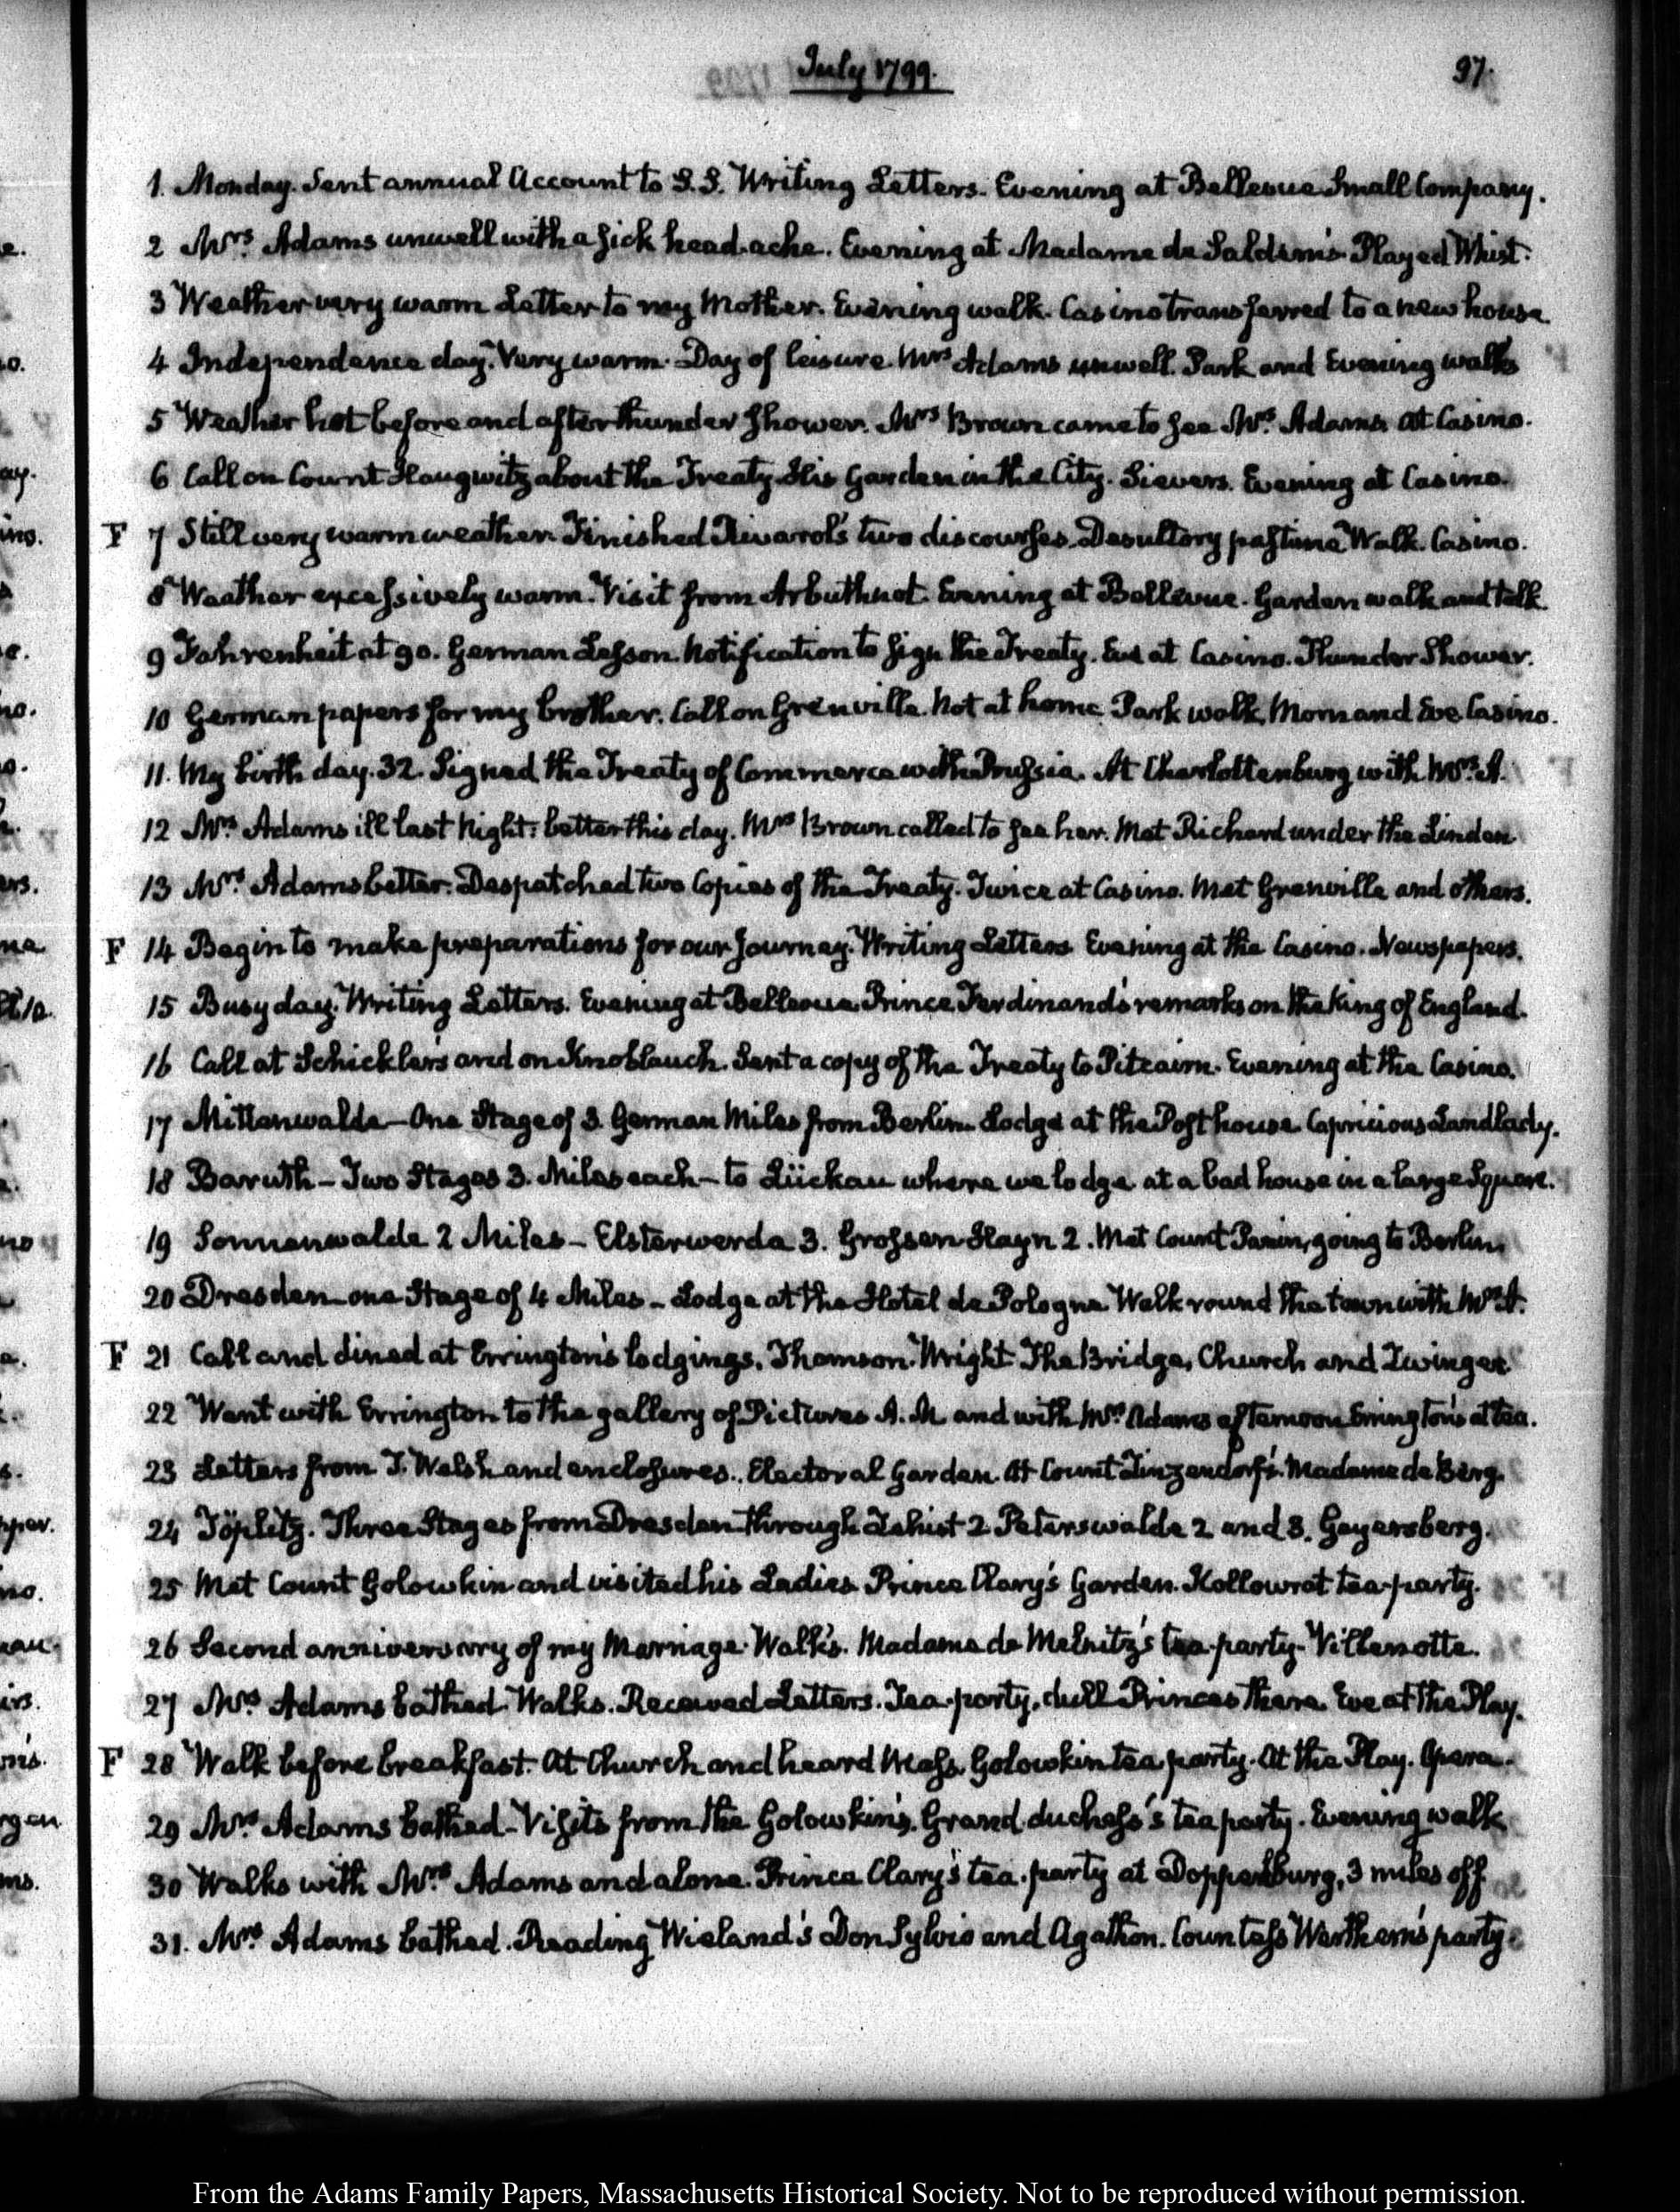 July 1799.
97.
1. Monday. Sent annual Account to S.S. Writing Letters. Evening at Bellevue Small Company.
2 Mrs. Adams unwell with a sick head-ache. Evening at Madame de Saldern's. Played Whist.
3 Weather very warm. Letter to my Mother. Evening walk. Casino transferred to a new house.
4 Independence day. Very warm. Day of leisure. Mrs Adams unwell. Park and Evening walks
5 Weather hot before and after thunder shower. Mrs Brown came to see Mrs. Adams. At Casino.
6 Call on Count Haugwitz about the Treaty. His Garden in the City. Sievers. Evening at Casino.
F 7 Still very warm weather. Finished Rivarol's two discourses. Desultory pastime. Walk. Casino.
8 Weather excessively warm. Visit from Arbuthnot. Evening at Bellevue. Garden walk and talk.
9 Fahrenheit at 90. German Lesson. Notification to sign the Treaty. Eve at Casino. Thunder Shower.
10 German papers for my brother. Call on Grenville. Not at home. Park walk, Morn and Eve Casino.
11. My birth day. 32. Signed the Treaty of Commerce with Prussia. At Charlottenburg with Mrs. A.
12 Mrs. Adams ill last night: better this day. Mrs Brown called to see her. Met Richard under the Linden
13 Mrs. Adams better. Despatched two Copies of the Treaty. Twice at Casino. Met Grenville and others.
F 14 Begin to make preparations for our Journey. Writing Letters Evening at the Casino. Newspapers.
15 Busy day. Writing Letters. Evening at Bellevue. Prince Ferdinand's remarks on the King of England.
16 Call at Schickler's and on Knoblauch. Sent a copy of the Treaty to Pitcairn. Evening at the Casino.
17 Mittenwalde—One Stage of 3. German Miles from Berlin. Lodge at the Post house. Capricious Landlady.
18 Baruth—Two Stages 3. Miles each—to Lückau where we lodge at a bad house in a large Square.
19 Sonnenwalde 2 Miles—Elsterwerda 3. Grossen Hayn 2. Met Count Panin, going to Berlin.
20 Dresden—one Stage of 4 Miles—Lodge at the Hotel de Pologne Walk round the town with Mrs. A.
F 21 Call and dined at Errington's lodgings. Thomson. Wright. The Bridge, Church and Zwinger
22 Went with Errington to the gallery of Pictures A.M and with Mrs. Adams afternoon Errington's at tea.
23 Letters from T. Welsh and enclosures. Electoral Garden. At Count Zinzendorf's. Madame de Berg.
24 Töplitz. Three Stages from Dresden through Zehist 2 Peterswalde 2 and 3. Geyersberg.
25 Met Count Golowkin and visited his Ladies. Prince Clary's Garden. Kollowrat tea-party.
26 Second anniversary of my Marriage. Walks. Madame de Melnitz's tea-party. Villenotte.
27 Mrs. Adams bathed. Walks. Received Letters. Tea-party, dull Princes there. Eve at the Play.
F 28 Walk before breakfast. At Church and heard Mass. Golowkin tea party. At the Play. Opera.
29 Mrs. Adams bathed—Visits from the Golowkin's. Grand-duchess's tea party. Evening walk
30 Walks with Mrs. Adams and alone. Prince Clary's tea-party at Dopperlburg, 3 miles off
31. Mrs. Adams bathed. Reading Wieland's Don Sylvio and Agathon. Countess Werthern's party.
From the Adams Family Papers, Massachusetts Historical Society. Not to be reproduced without permission.